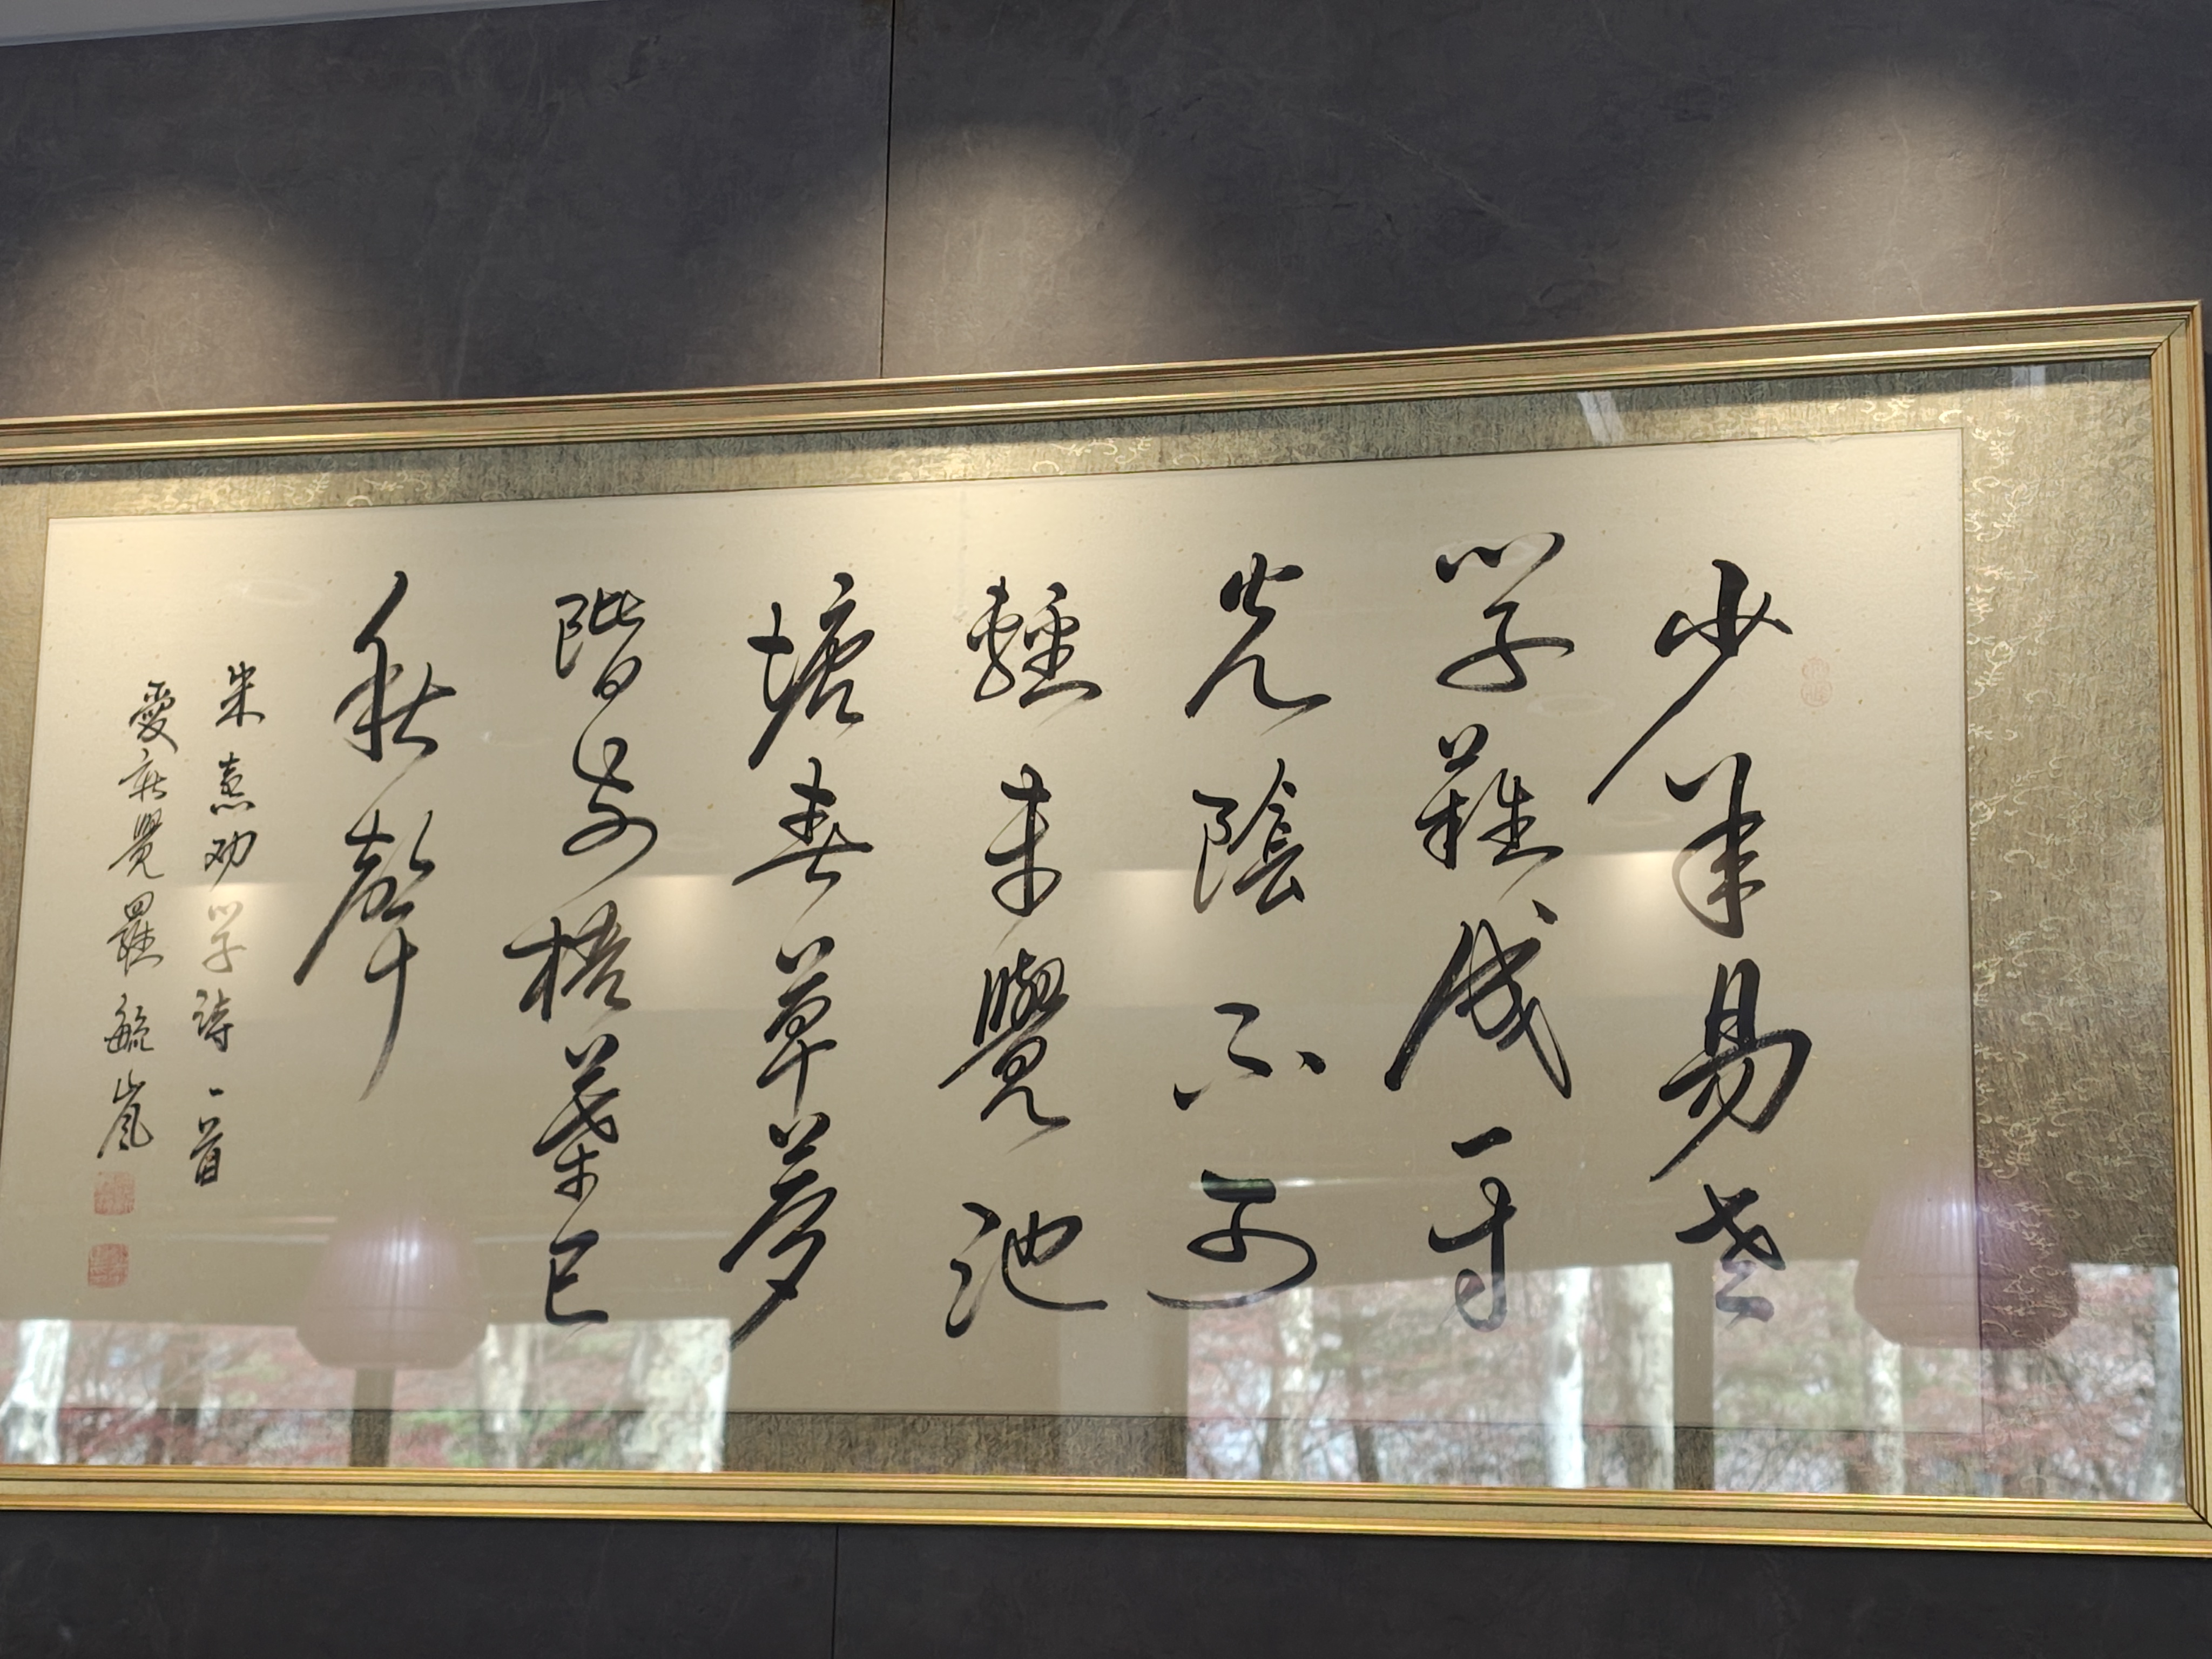 少年易老
学難成一寸
光陰不可
輕未覺池
塘春草夢
階前梧葉已
秋聲
朱熹劝学詩一首
愛新覺羅毓嵐